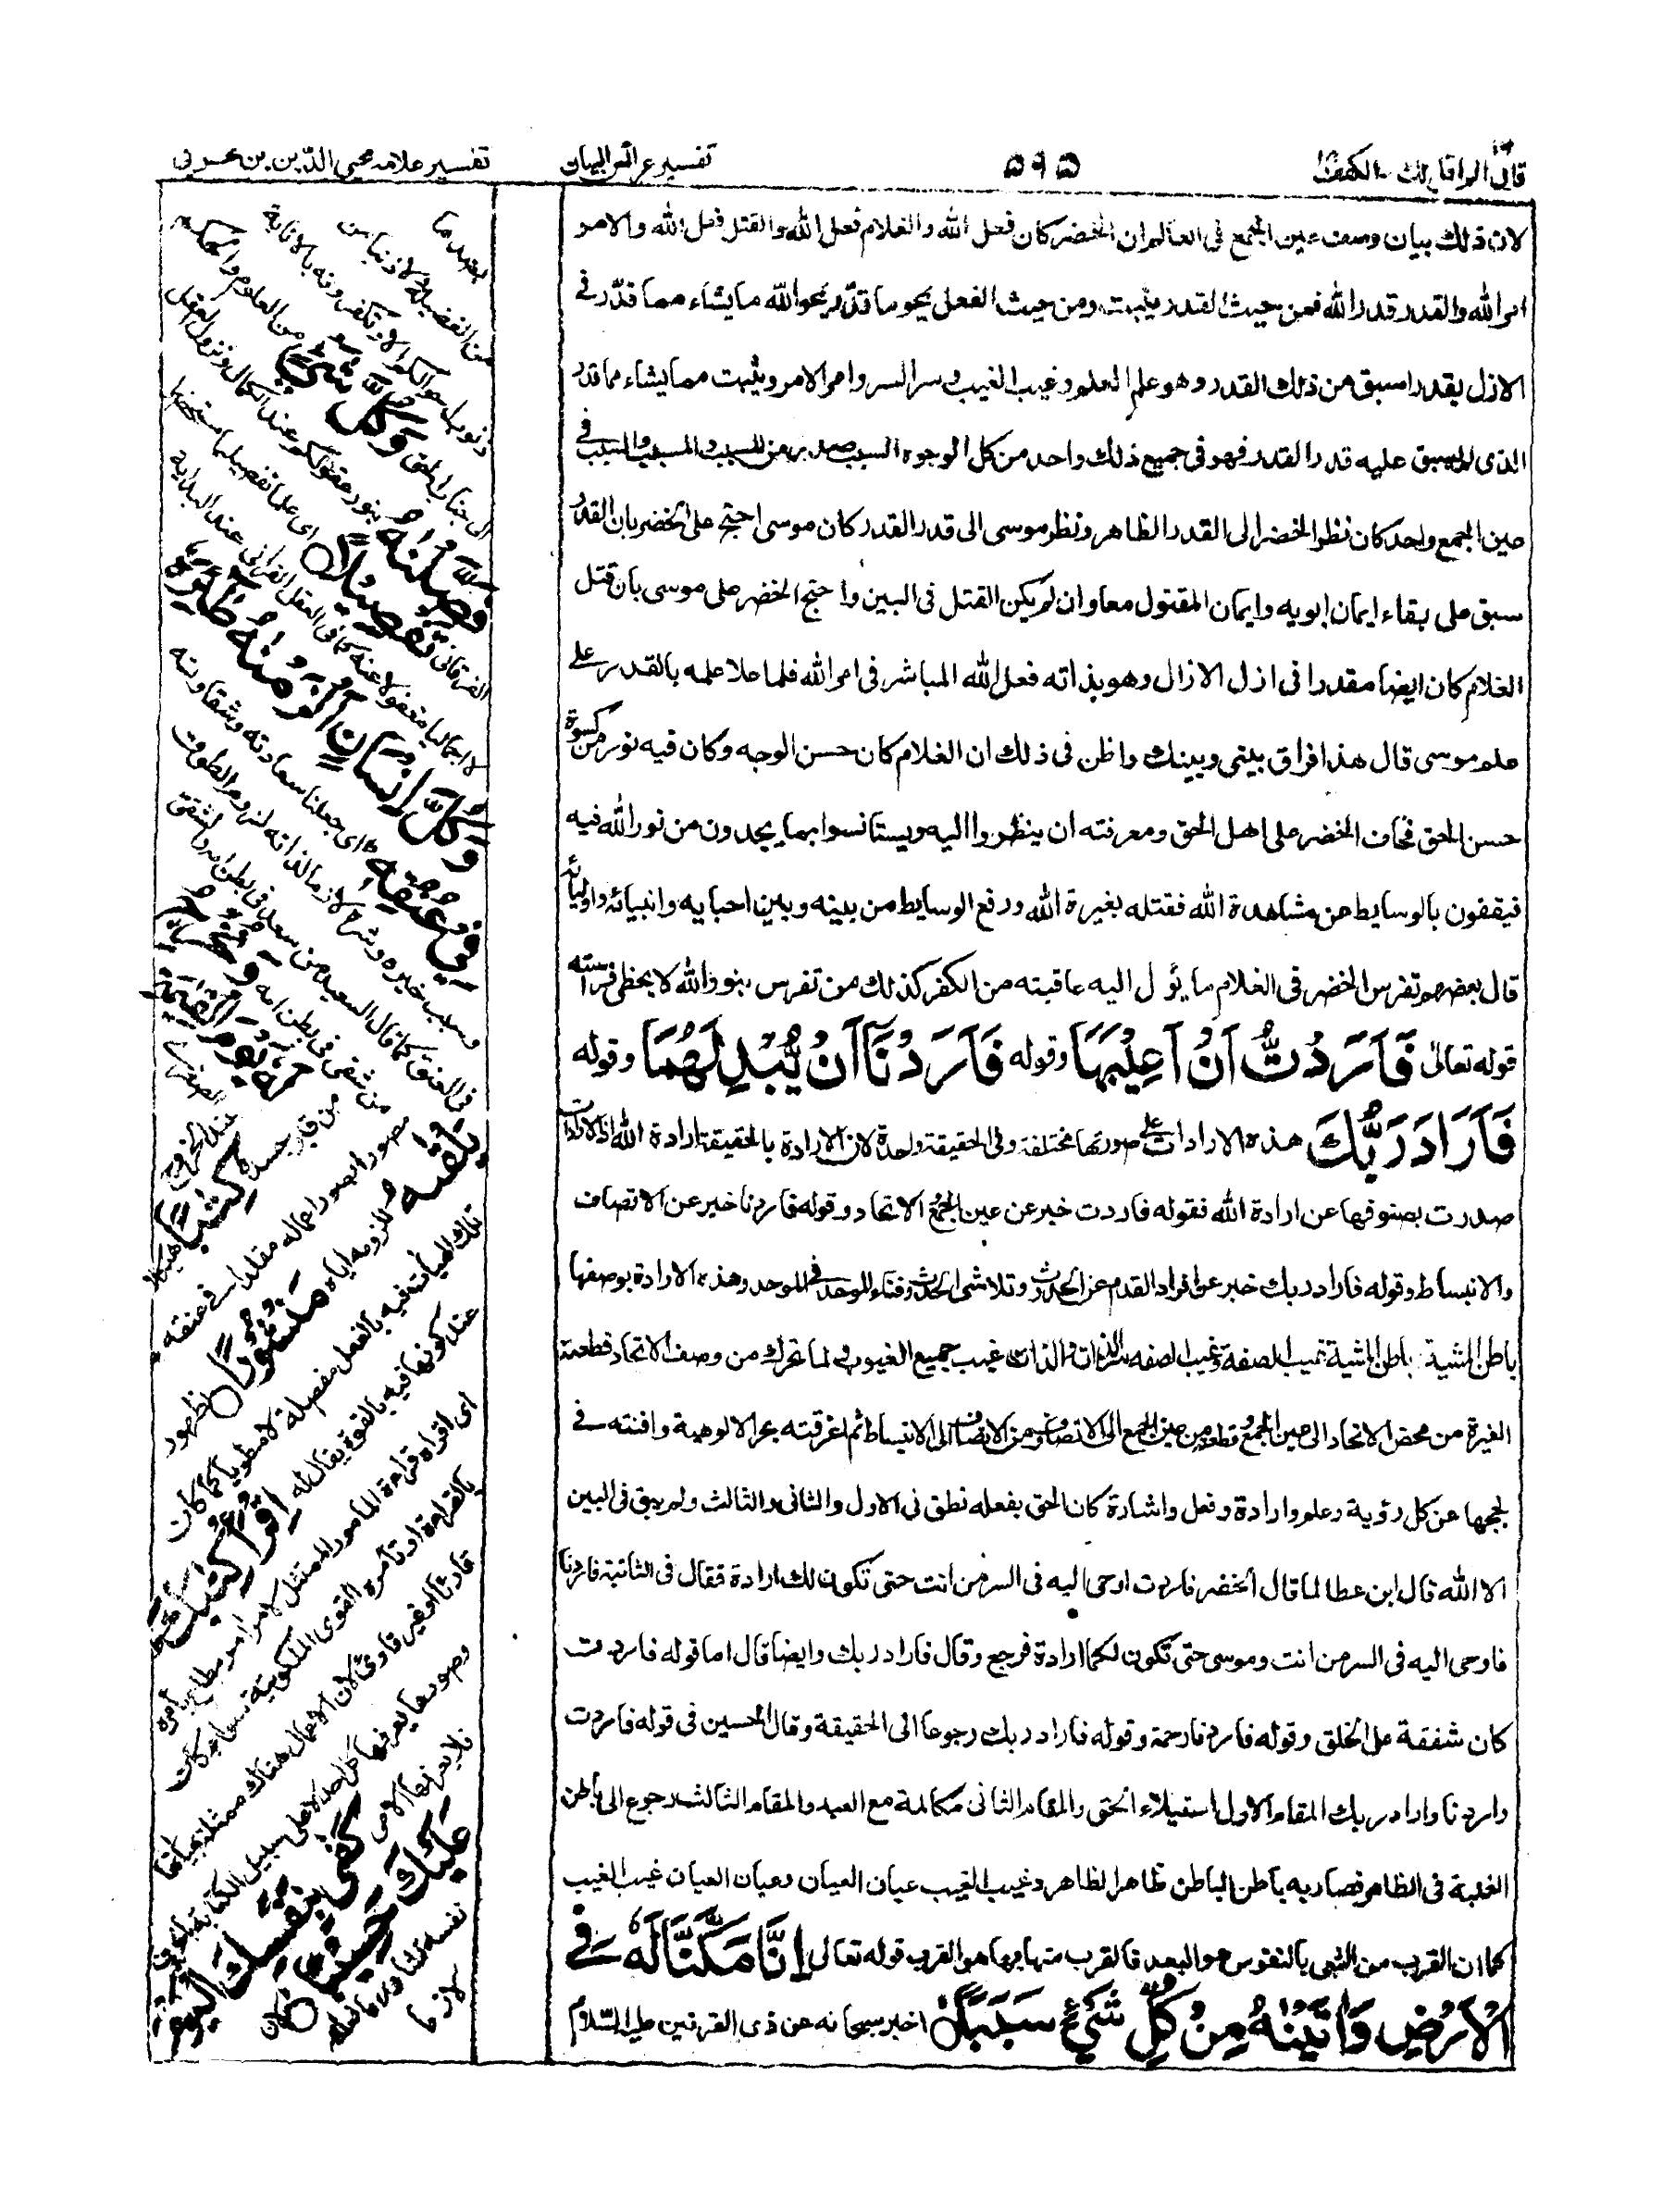 قال الم اقل لك الكهف
۵۹۵
تفسير عرائس البيان
تفسير علامه محيى الدين بن عربى
لان ذلك بيان وصف عين الجمع فى العالم ان الخضر كان فعل الله والغلام فعل الله والقتل فعل الله والامر
امر الله والقدر قدر الله فمن حيث القدر يثبت ومن حيث الفعل يمحو ما قدّر يمحوالله ما يشاء مما قدّر فى
الازل بقدر اسبق من ذلك القدر وهو علم العلم وغيب الغيب وسر السر وامر الامر ويثبت مما يشاء مما قدر
الذى لم يسبق عليه قدر القدر فهو فى جميع ذلك واحد من كل الوجوه السبب صدر من المسبب والمسبب والسبب فى
عين الجمع واحد كان نظر الخضر الى القدر الظاهر ونظر موسى الى قدر القدر كان موسى احتج على الخضر بان القدر
سبق على بقاء ايمان ابويه وايمان المقتول معا وان لم يكن القتل فى البين واحتج الخضر على موسى بان قتل
الغلام كان ايضا مقدرا فى ازل الازال وهو بذاته فعل الله المباشر فى امر الله فلما علا علمه بالقدر على
علم موسى قال هذا فراق بينى وبينك واظن فى ذلك ان الغلام كان حسن الوجه وكان فيه نور من كسوة
حسن الحق فخاف الخضر على اهل الحق ومعرفته ان ينظروا اليه ويستانسوا بما يجدون من نور الله فيه
فيقفون بالوسايط عن مشاهدة الله فقتله بغيرة الله ورفع الوسايط من بينه وبين احبايه وانبيائه واوليائه
قال بعضهم تفرس الخضر فى الغلام ما يؤل اليه عاقبته من الكفر كذلك من تفرس بنور الله لا يخطى فراسته
قوله تعالى فَاَرَدْتُّ اَنْ اَعِيْبَهَا وقوله فَاَرَدْنَآ اَنْ يُّبْدِلَهُمَا وقوله
فَاَرَادَ رَبُّكَ هذه الارادات على صورتها مختلفة وفى الحقيقة واحدة لان الارادة بالحقيقة ارادة الله اذ الارادات
صدرت بصنوفها عن ارادة الله فقوله فاردت خبر عن عين الجمع الاتحاد وقوله فاردنا خبر عن الاتصاف
والانبساط وقوله فاراد ربك خبر عن افراد القدم عن الحدث وتلاشى الحدث وفناء الموحد فى الموحد وهذه الارادة بوصفها
باطن المشية باطن المشية غيب الصفة وغيب الصفه سر الذات والذات غيب جميع الغيوب فلما تحرك من وصف الاتحاد قطعته
الغيرة من محض الاتحاد الى عين الجمع وقطعه من عين الجمع الى الاتصاف ومن الاتصاف الى الانبساط ثم اغرقته بحر الالوهية وافنته فى
لججها عن كل رؤية وعلم وارادة وفعل واشارة كان الحق بفعله نطق فى الاول والثانى والثالث ولم يبق فى البين
الا الله قال ابن عطا لما قال الخضر فاردت اوحى اليه فى السر من انت حتى تكون لك ارادة فقال فى الثانية فاردنا
فاوحى اليه فى السر من انت وموسى حتى تكون لكما ارادة فرجع وقال فاراد ربك وايضا قال اما قوله فاردت
كان شفقة على الخلق وقوله فاردنا رحمة وقوله فاراد ربك رجوعا الى الحقيقة وقال الحسين فى قوله فاردت
واردنا واراد ربك المقام الاول استيلاء الحق والمقام الثانى مكالمة مع العبد والمقام الثالث رجوع الى باطن
الغلبة فى الظاهر فصار به باطن الباطن ظاهر الظاهر وغيب الغيب عيان العيان وعيان العيان غيب الغيب
كما ان القرب من الشى بالنفوس هو البعد فالقرب منها بها هو القرب قوله تعالى اِنَّا مَكَّنَّا لَهٗ فِى
الْاَرْضِ وَاٰتَيْنٰهُ مِنْ كُلِّ شَىْءٍ سَبَبًا اخبر سبحانه عن ذى القرنين عليه السلام
وَكُلَّ شَىْءٍ
فَصَّلْنٰهُ
تَفْصِيْلًا اى علمنا تفصيليا
وَكُلَّ اِنْسَانٍ اَلْزَمْنٰهُ طٰٓئِرَهٗ
فِىْ عُنُقِهٖ اى جعلنا سعادته وشقاوته
وَنُخْرِجُ
لَهٗ يَوْمَ الْقِيٰمَةِ
من قبر جسده كِتٰبًا
يَّلْقٰىهُ للزومه اياه مَنْشُوْرًا لظهور
تلك الهيآت فيه بالفعل مفصلة لا مطويا كما كان
عند كونها فيه بالقوة يقال له اِقْرَاْ كِتٰبَكَ
اى اقراه قراءة المامور الممتثل لامر امر مطاع يامره
بالقراءة او تامره القوى الملكوتية سواء كان
قارئا او غير قارئ لان الاعمال هناك ممثلة بهيآتها
وصورها يعرفها كل احد لا على سبيل الكتابة بالحروف
فلا يعرفها الامى كَفٰى بِنَفْسِكَ الْيَوْمَ
عَلَيْكَ حَسِيْبًا